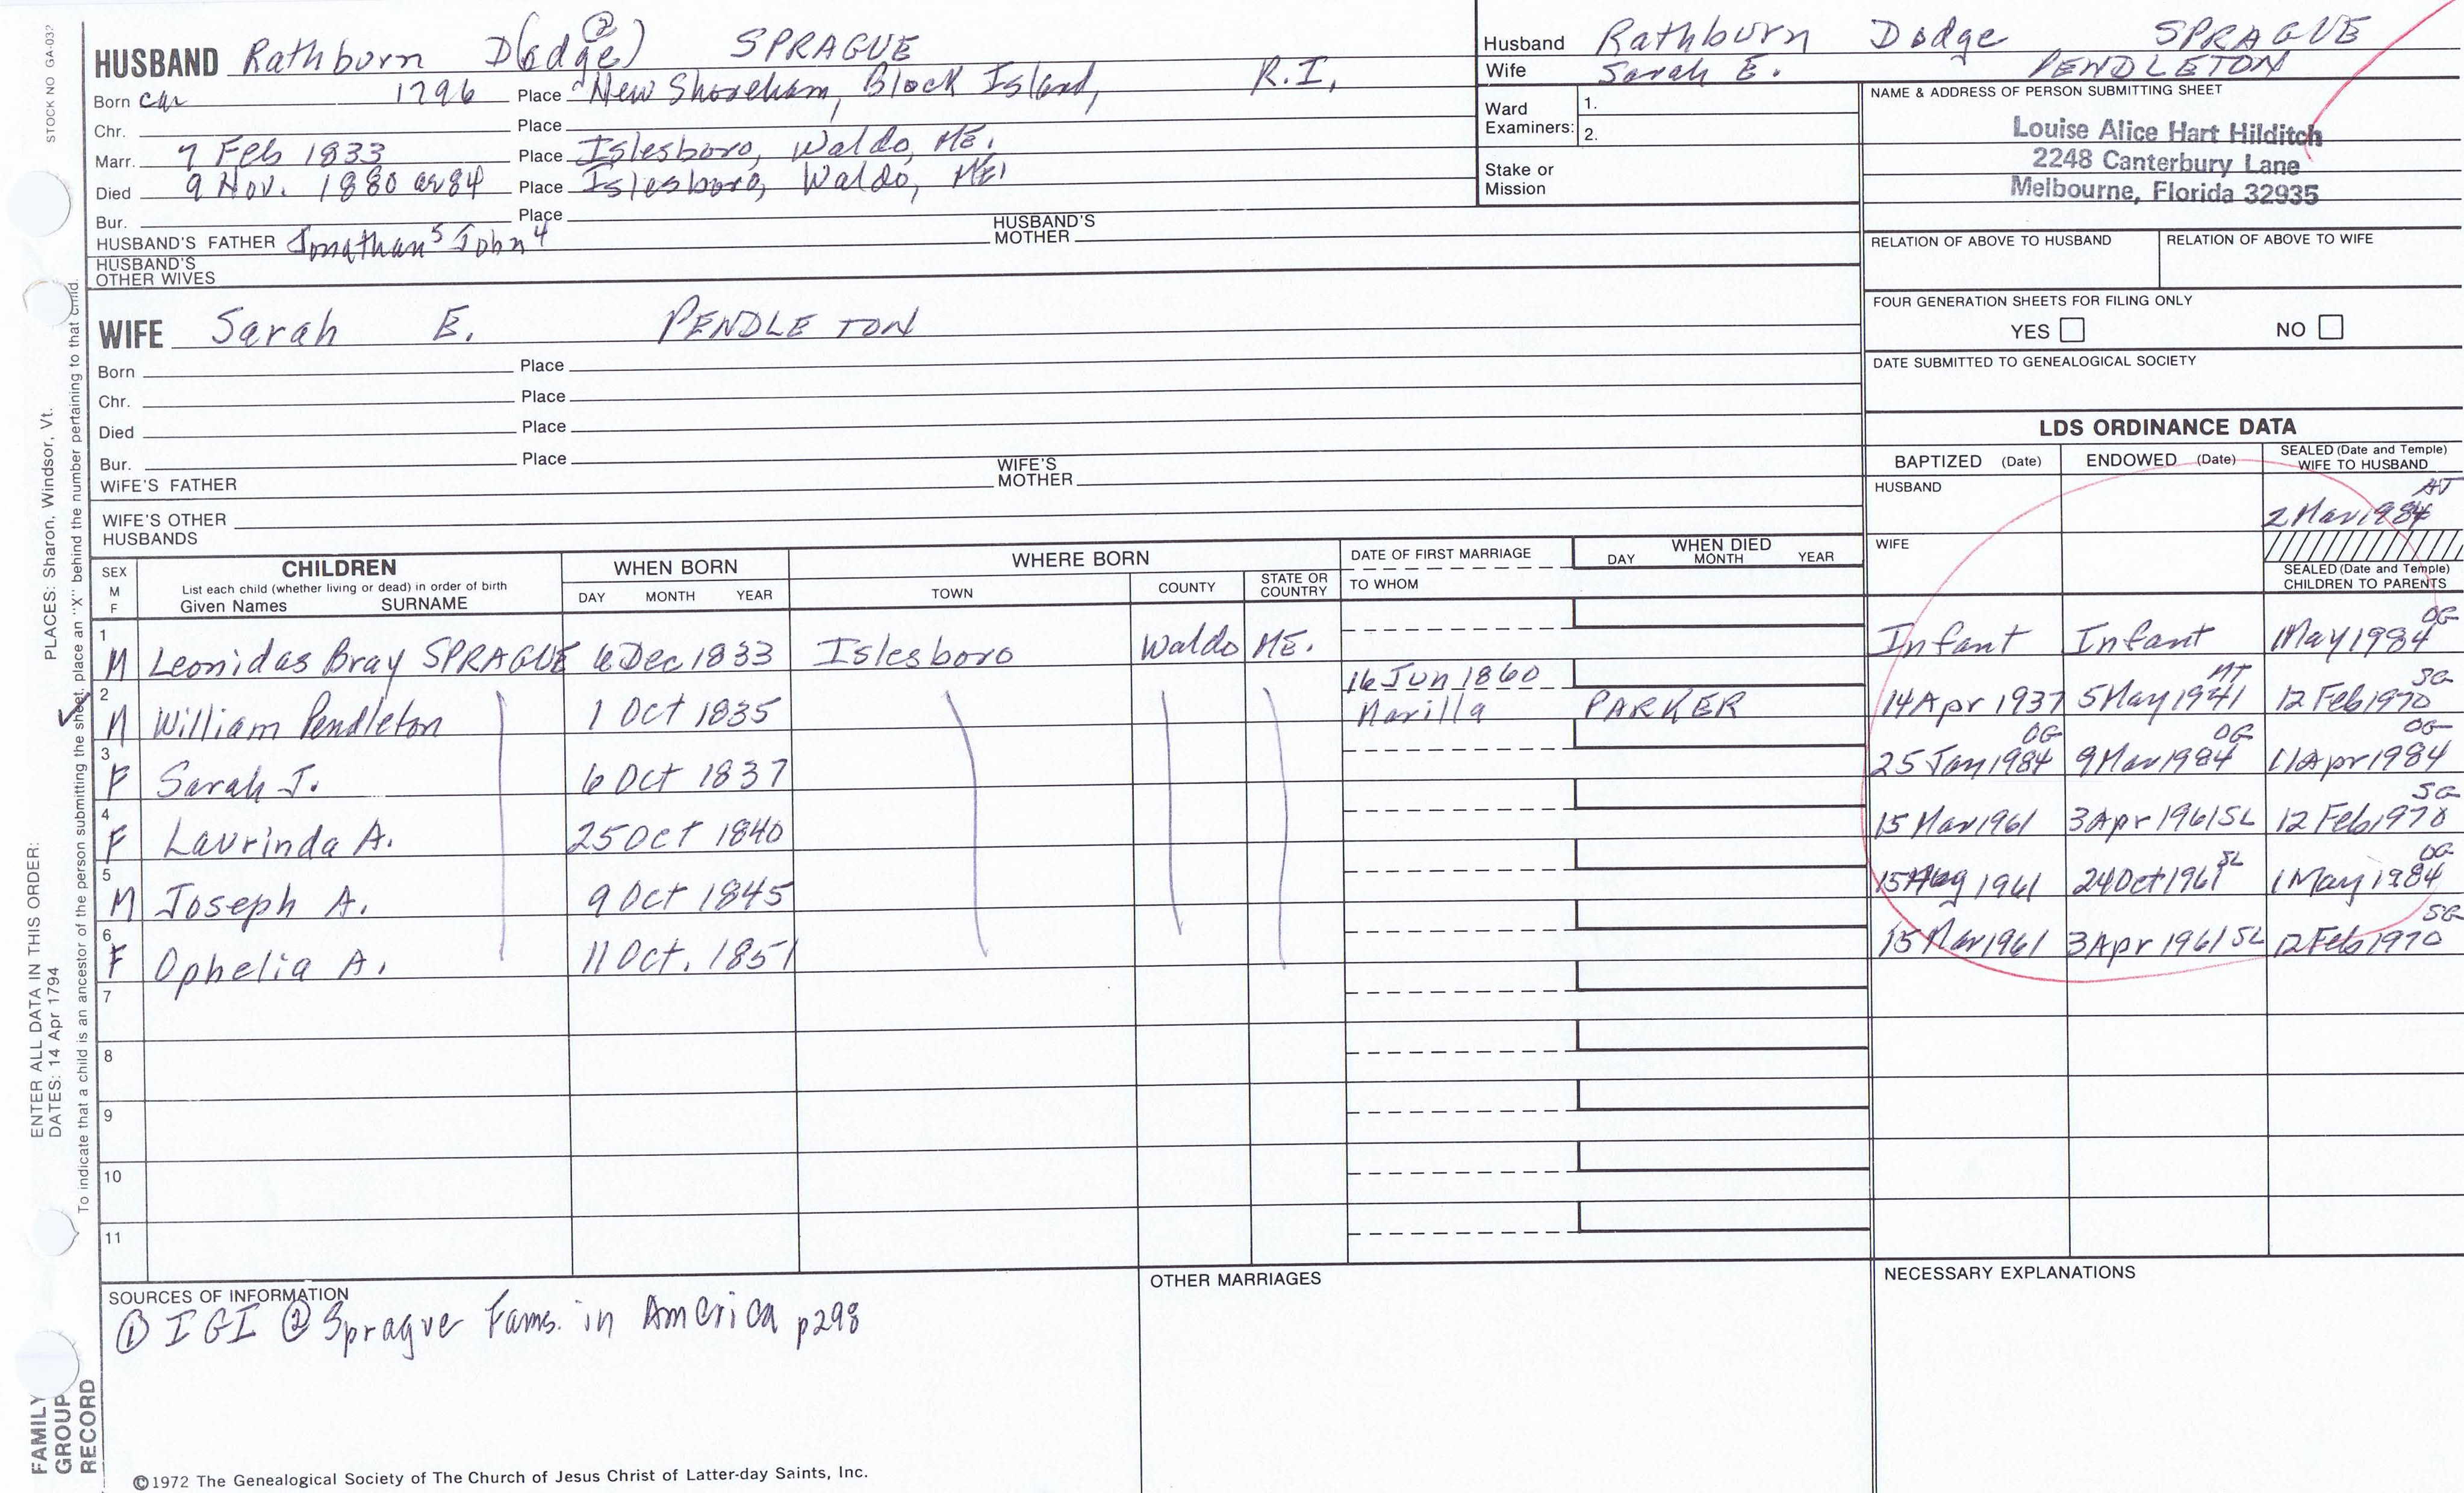 STOCK NO GA-03
②
HUSBAND Rathburn D(odge) SPRAGUE
Born ca 1796 Place New Shoreham, Block Island, R.I.
Chr. Place
Marr. 7 Feb 1833 Place Islesboro, Waldo, ME.
Died 9 Nov. 1880 or 84 Place Islesboro, Waldo, ME
Bur. Place
HUSBAND'S FATHER Jonathan⁵ John⁴ HUSBAND'S MOTHER
HUSBAND'S OTHER WIVES
WIFE Sarah E. PENDLETON
Born Place
Chr. Place
Died Place
Bur. Place
WIFE'S FATHER WIFE'S MOTHER
WIFE'S OTHER HUSBANDS
Husband Rathburn Dodge SPRAGUE
Wife Sarah E. PENDLETON
Ward Examiners: 1.
2.
Stake or Mission
NAME & ADDRESS OF PERSON SUBMITTING SHEET
Louise Alice Hart Hilditch
2248 Canterbury Lane
Melbourne, Florida 32935
RELATION OF ABOVE TO HUSBAND RELATION OF ABOVE TO WIFE
FOUR GENERATION SHEETS FOR FILING ONLY
YES NO
DATE SUBMITTED TO GENEALOGICAL SOCIETY
LDS ORDINANCE DATA
BAPTIZED (Date) ENDOWED (Date) SEALED (Date and Temple) WIFE TO HUSBAND
HUSBAND 2 Mar 1984 AT
WIFE
SEALED (Date and Temple) CHILDREN TO PARENTS
SEX M F
CHILDREN
List each child (whether living or dead) in order of birth
Given Names SURNAME
WHEN BORN
DAY MONTH YEAR
WHERE BORN
TOWN COUNTY STATE OR COUNTRY
DATE OF FIRST MARRIAGE
TO WHOM
WHEN DIED
DAY MONTH YEAR
1 M Leonidas Bray SPRAGUE 6 Dec 1833 Islesboro Waldo ME. Infant Infant 1 May 1984 OG
2 M William Pendleton 1 Oct 1835 16 Jun 1860 Marilla PARKER 14 Apr 1937 5 May 1941 MT 12 Feb 1970 SG
3 F Sarah J. 6 Oct 1837 25 Jan 1984 OG 9 Mar 1984 OG 11 Apr 1984 OG
4 F Laurinda A. 25 Oct 1840 15 Mar 1961 3 Apr 1961 SL 12 Feb 1970 SG
5 M Joseph A. 9 Oct 1845 15 Aug 1961 24 Oct 1961 SL 1 May 1984 OG
6 F Ophelia A. 11 Oct. 1851 15 Mar 1961 3 Apr 1961 SL 12 Feb 1970 SG
7
8
9
10
11
SOURCES OF INFORMATION
① IGI ② Sprague Fams. in America p298
OTHER MARRIAGES
NECESSARY EXPLANATIONS
©1972 The Genealogical Society of The Church of Jesus Christ of Latter-day Saints, Inc.
FAMILY GROUP RECORD
ENTER ALL DATA IN THIS ORDER:
DATES: 14 Apr 1794
PLACES: Sharon, Windsor, Vt.
To indicate that a child is an ancestor of the person submitting the sheet, place an "X" behind the number pertaining to that child.